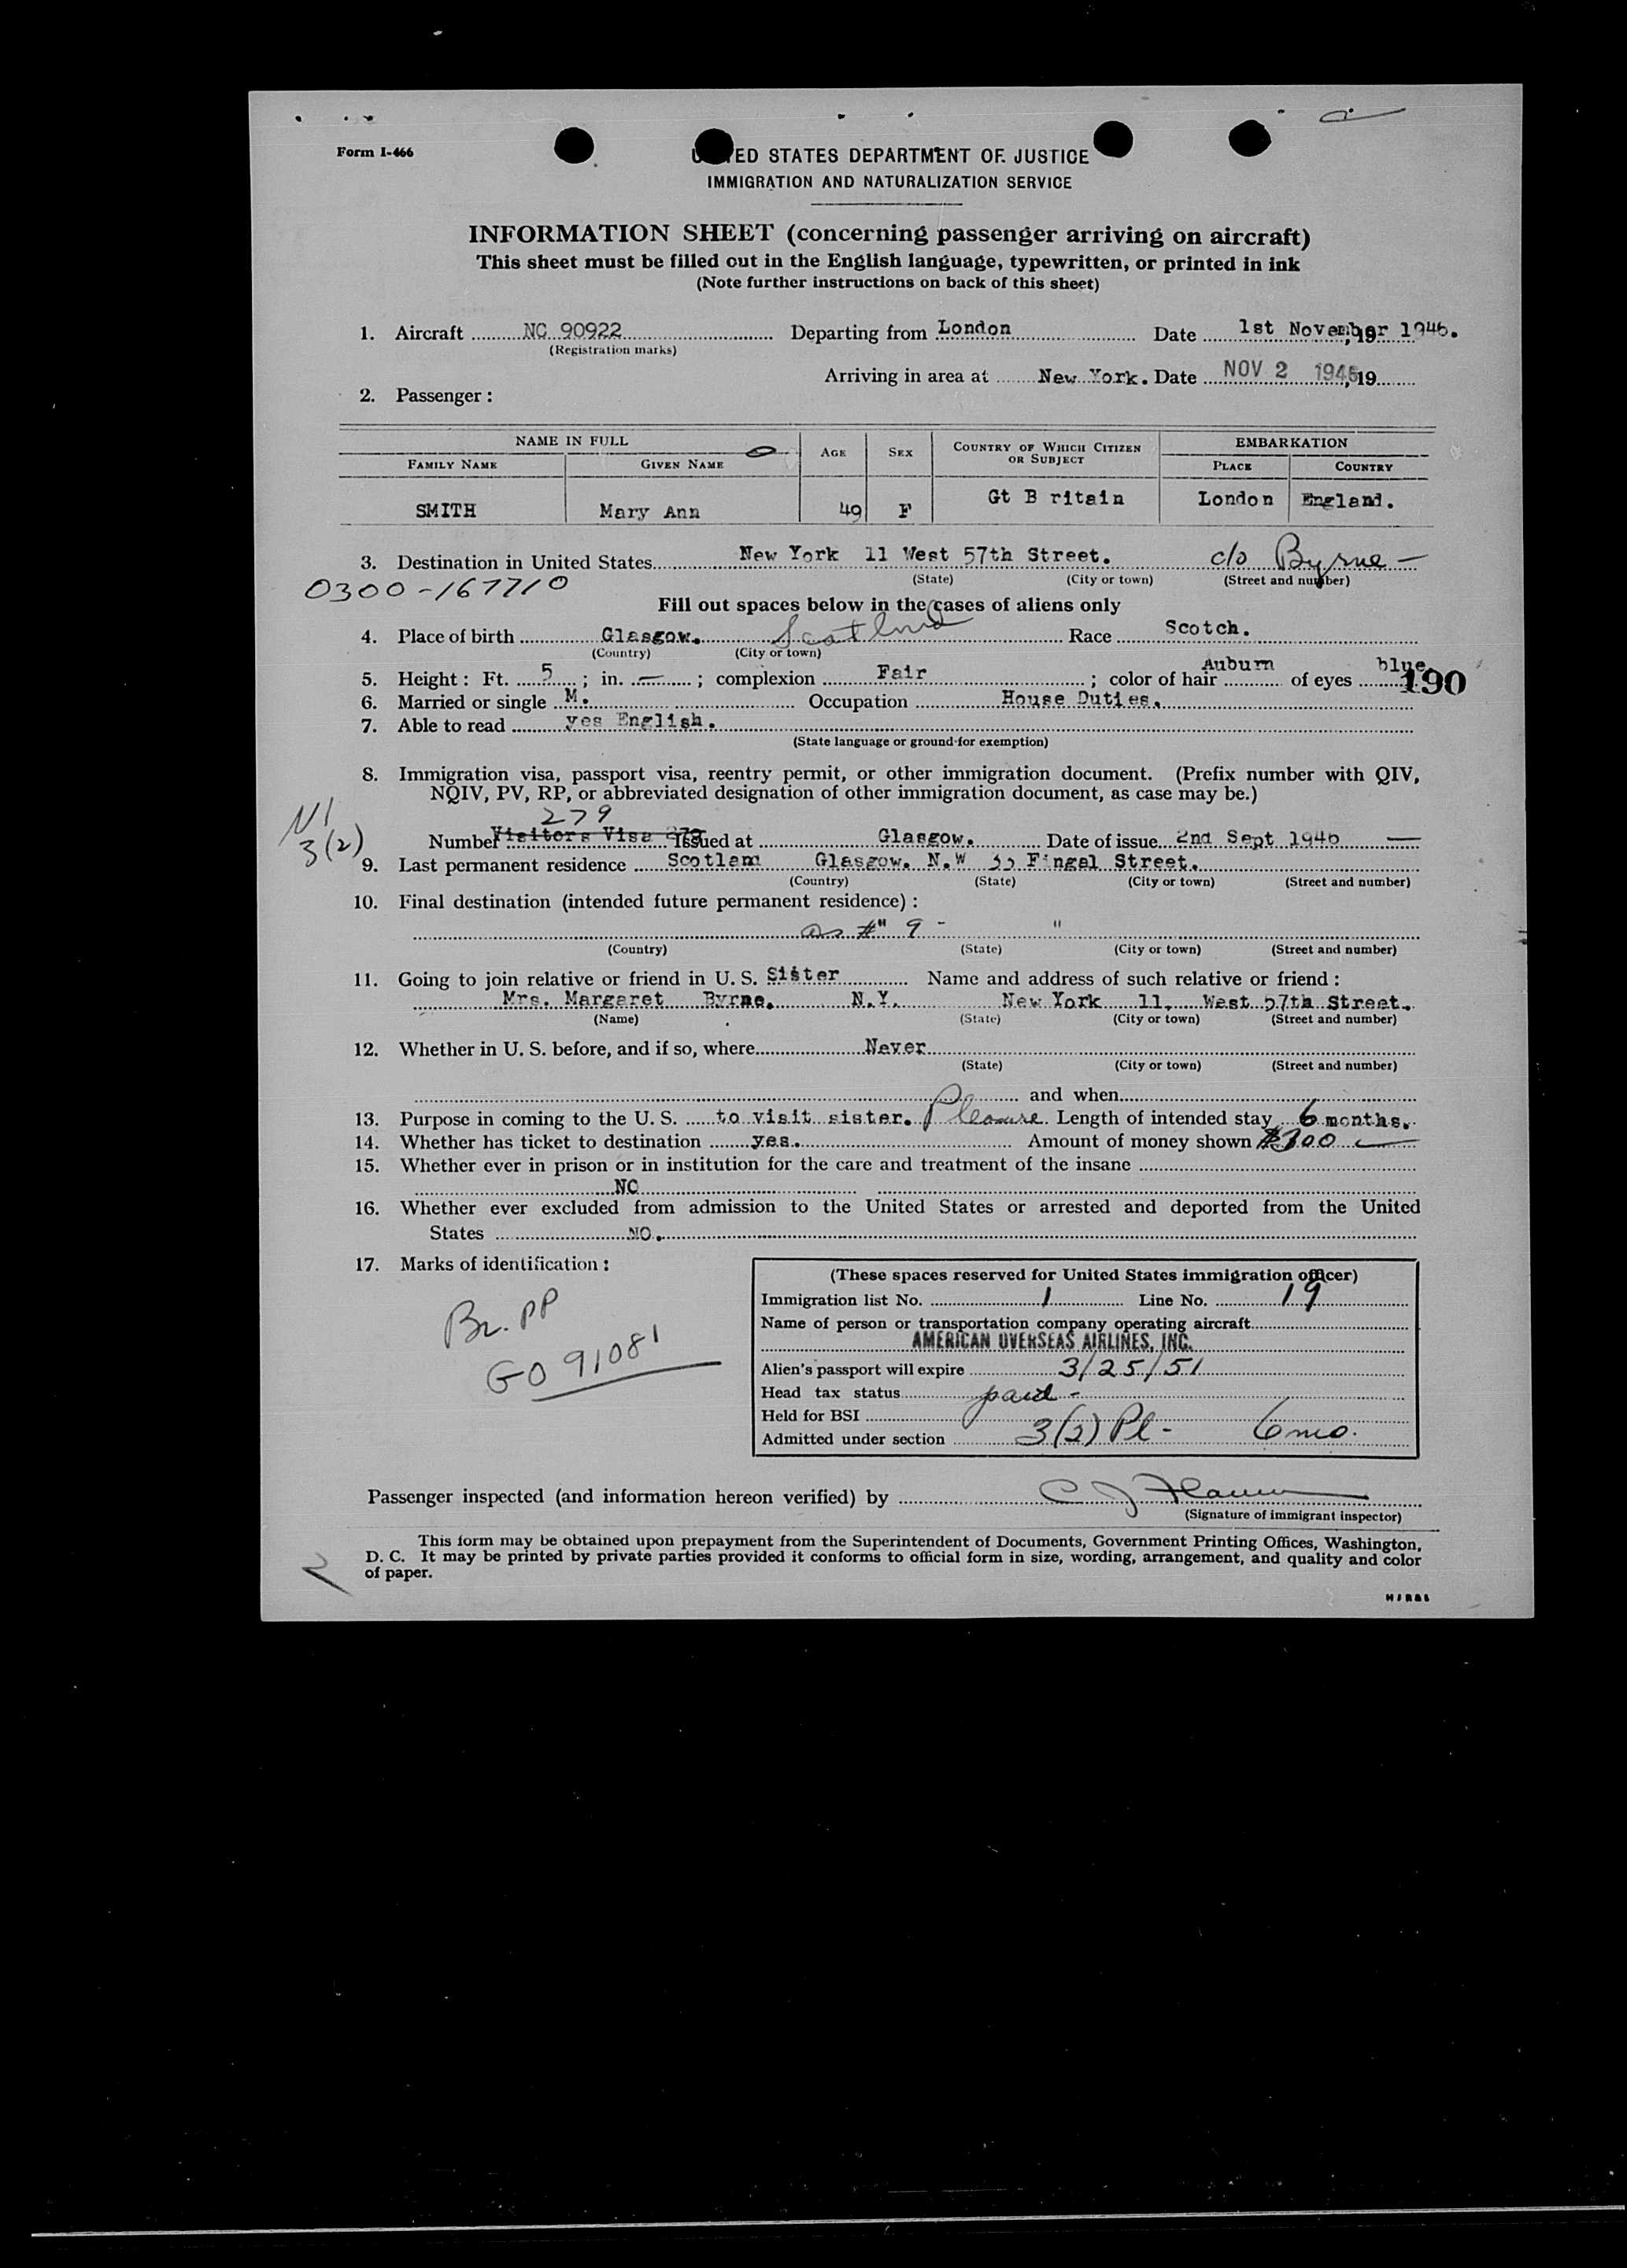 Form I-466
ED STATES DEPARTMENT OF JUSTICE
IMMIGRATION AND NATURALIZATION SERVICE
INFORMATION SHEET (concerning passenger arriving on aircraft)
This sheet must be filled out in the English language, typewritten, or printed in ink
(Note further instructions on back of this sheet)
1. Aircraft NC 90922 Departing from London Date 1st November, 19 1946.
(Registration marks)
Arriving in area at New York. Date NOV 2 1946, 19
2. Passenger:
NAME IN FULL AGE SEX COUNTRY OF WHICH CITIZEN OR SUBJECT EMBARKATION
FAMILY NAME GIVEN NAME PLACE COUNTRY
SMITH Mary Ann 49 F Gt B ritain London England.
3. Destination in United States New York 11 West 57th Street. c/o Byrne -
(State) (City or town) (Street and number)
0300-167710
Fill out spaces below in the cases of aliens only
4. Place of birth Glasgow. Scotland Race Scotch.
(Country) (City or town)
5. Height: Ft. 5; in. —; complexion Fair; color of hair Auburn of eyes blue
190
6. Married or single M. Occupation House Duties.
7. Able to read yes English.
(State language or ground for exemption)
8. Immigration visa, passport visa, reentry permit, or other immigration document. (Prefix number with QIV,
NQIV, PV, RP, or abbreviated designation of other immigration document, as case may be.)
279
3(2)
Number Visitors Visa 279 Issued at Glasgow. Date of issue 2nd Sept 1946 —
9. Last permanent residence Scotlam Glasgow. N.W 33 Fingal Street.
(Country) (State) (City or town) (Street and number)
10. Final destination (intended future permanent residence):
as #" 9 - "
(Country) (State) (City or town) (Street and number)
11. Going to join relative or friend in U. S. Sister Name and address of such relative or friend:
Mrs. Margaret Byrne. N.Y. New York 11, West 57th Street.
(Name) (State) (City or town) (Street and number)
12. Whether in U. S. before, and if so, where Never
(State) (City or town) (Street and number)
and when
13. Purpose in coming to the U. S. to visit sister. Pleasure Length of intended stay 6 months.
14. Whether has ticket to destination yes. Amount of money shown $300
15. Whether ever in prison or in institution for the care and treatment of the insane
NO
16. Whether ever excluded from admission to the United States or arrested and deported from the United
States NO.
17. Marks of identification:
Br. PP
GO 91081
(These spaces reserved for United States immigration officer)
Immigration list No. 1 Line No. 19
Name of person or transportation company operating aircraft
AMERICAN OVERSEAS AIRLINES, INC.
Alien's passport will expire 3/25/51
Head tax status paid -
Held for BSI
Admitted under section 3(2) Pl - 6 mo.
Passenger inspected (and information hereon verified) by
(Signature of immigrant inspector)
This form may be obtained upon prepayment from the Superintendent of Documents, Government Printing Offices, Washington,
D. C. It may be printed by private parties provided it conforms to official form in size, wording, arrangement, and quality and color
of paper.